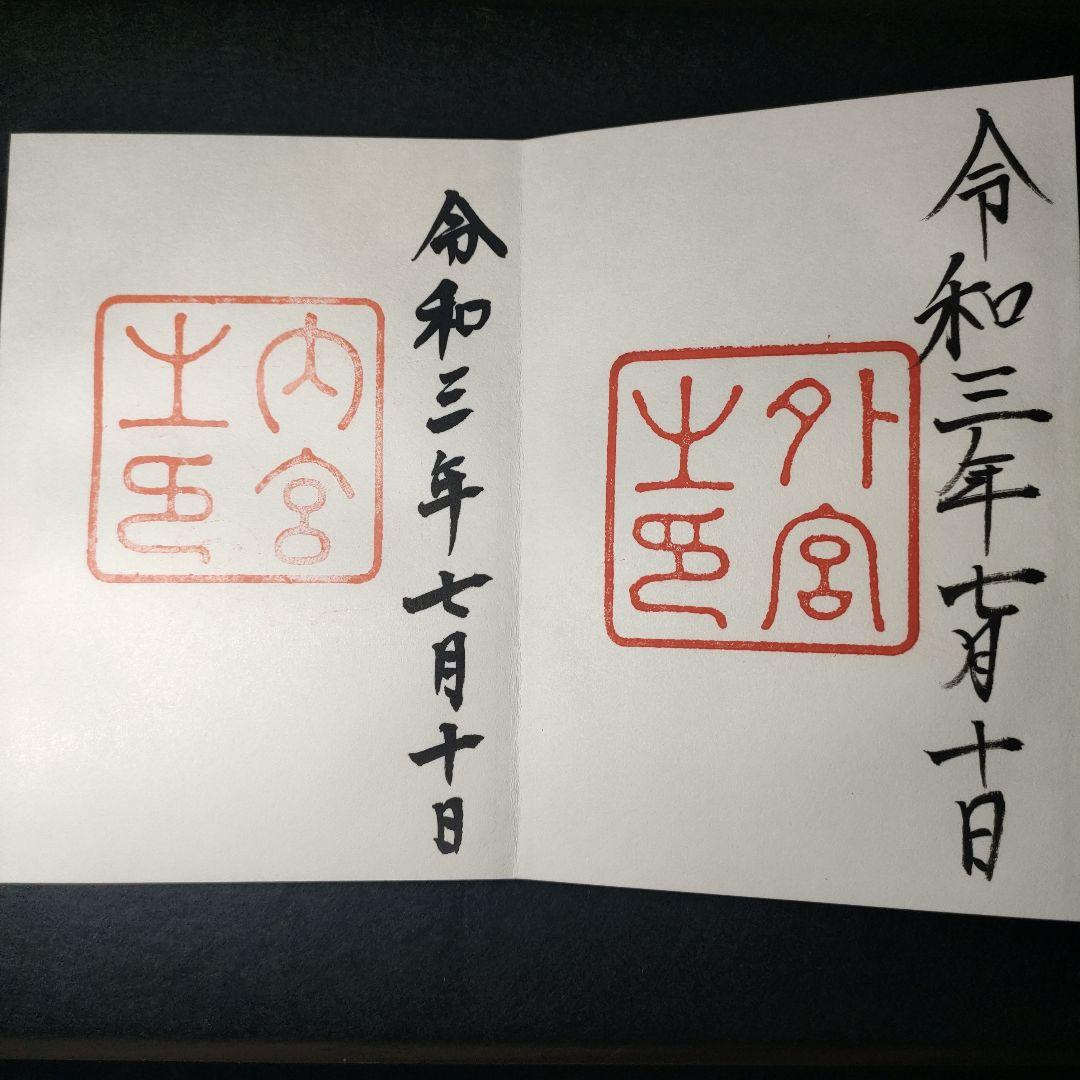 令和三年七月十日
外宮
之印
令和三年七月十日
内宮
之印